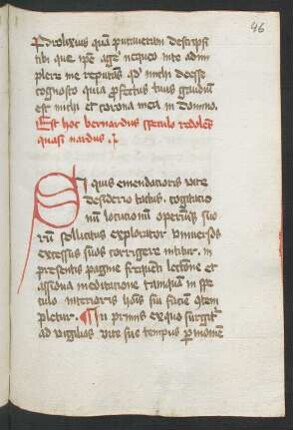 46
prolixius quam putaveram descripsi
tibi que ipse age nequeo in te adim
plere me reputans ad michi deesse
cognosco quia profectus tuus gaudium
est michi et corona mea in domino.
Est hoc bernardus speculo redolens
quasi nardus.
Si quis emendacioris vite
desiderio tactus cogitacio
num locucionum operumque suo
rum sollicitus explorator universos
excessus suos corrigere nititur. in
presentis pagine frequenti lectione et
assidua meditacione tamquam in spe
culo interioris hominis sui faciem contem
pletur. In primis ex quo surgitur
ad vigilias vite sue tempus per momen